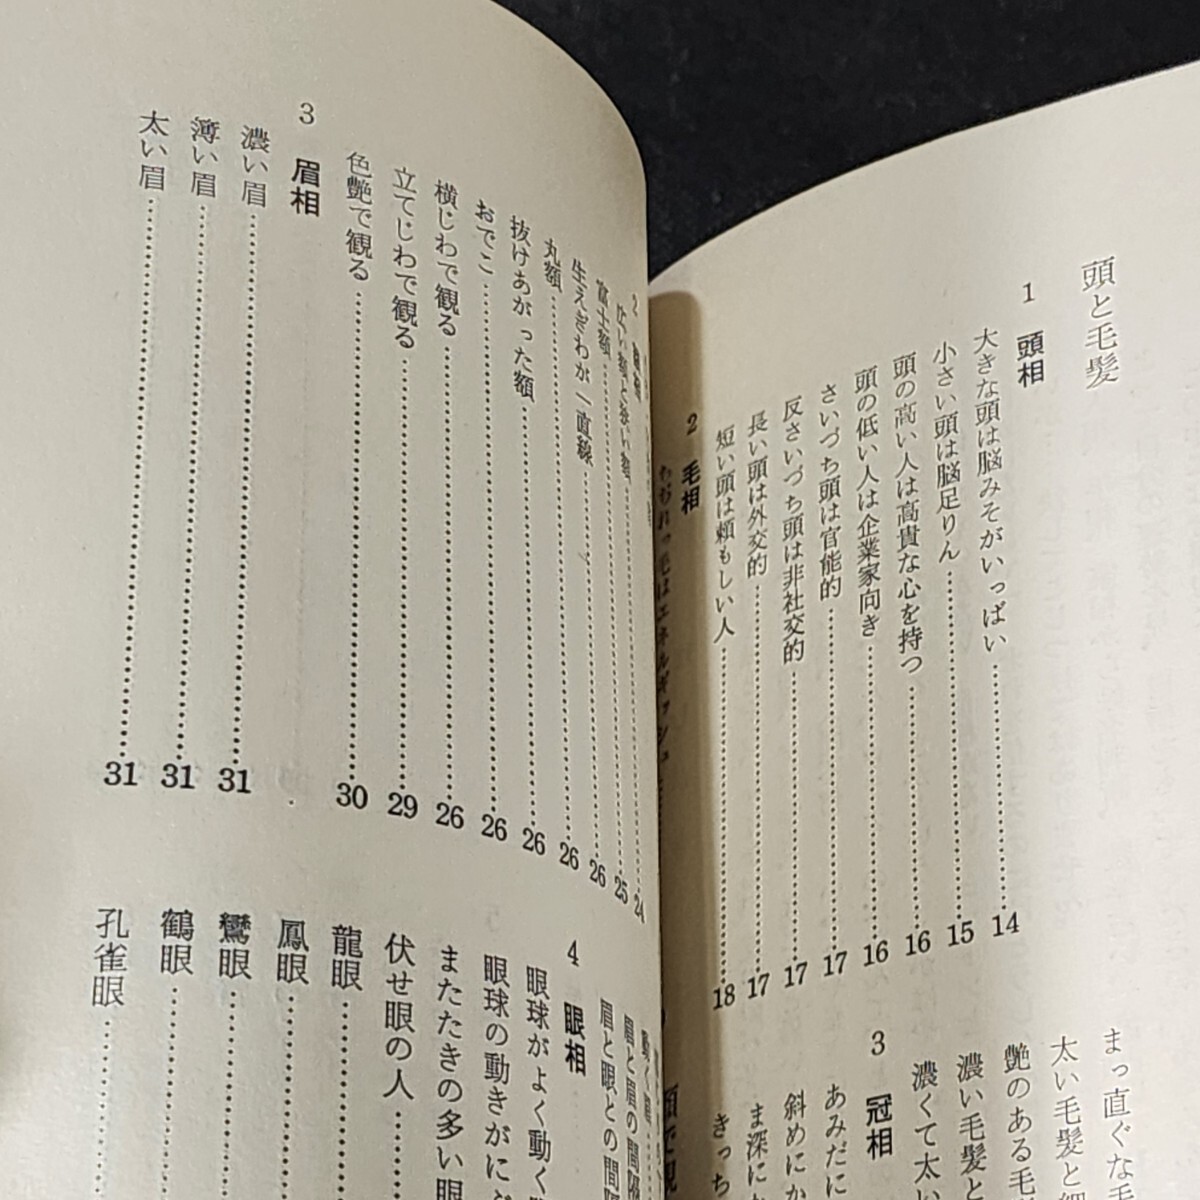 頭と毛髪
1 頭相
大きな頭は脳みそがいっぱい……14
小さい頭は脳足りん……15
頭の高い人は高貴な心を持つ……16
頭の低い人は企業家向き……16
さいづち頭は官能的……17
反さいづち頭は非社交的……17
長い頭は外交的……17
短い頭は頼もしい人……18
2 毛相
ちぢれっ毛はエネルギッシュ
まっ直ぐな毛
太い毛髪と細
艶のある毛
濃い毛髪と
濃くて太い
3 冠相
あみだに
斜めにか
ま深にか
きっち
広い額と狭い額……25
富士額……26
生えぎわが一直線……26
丸額……26
抜けあがった額……26
おでこ……26
横じわで観る……26
立てじわで観る……29
色艶で観る……30
3 眉相
濃い眉……31
薄い眉……31
太い眉……31
眉と眉の間隔
眉と眼との間隔
4 眼相
眼球がよく動く
眼球の動きがに
またたきの多い眼
伏せ眼の人……
龍眼……
鳳眼……
鸞眼……
鶴眼……
孔雀眼……